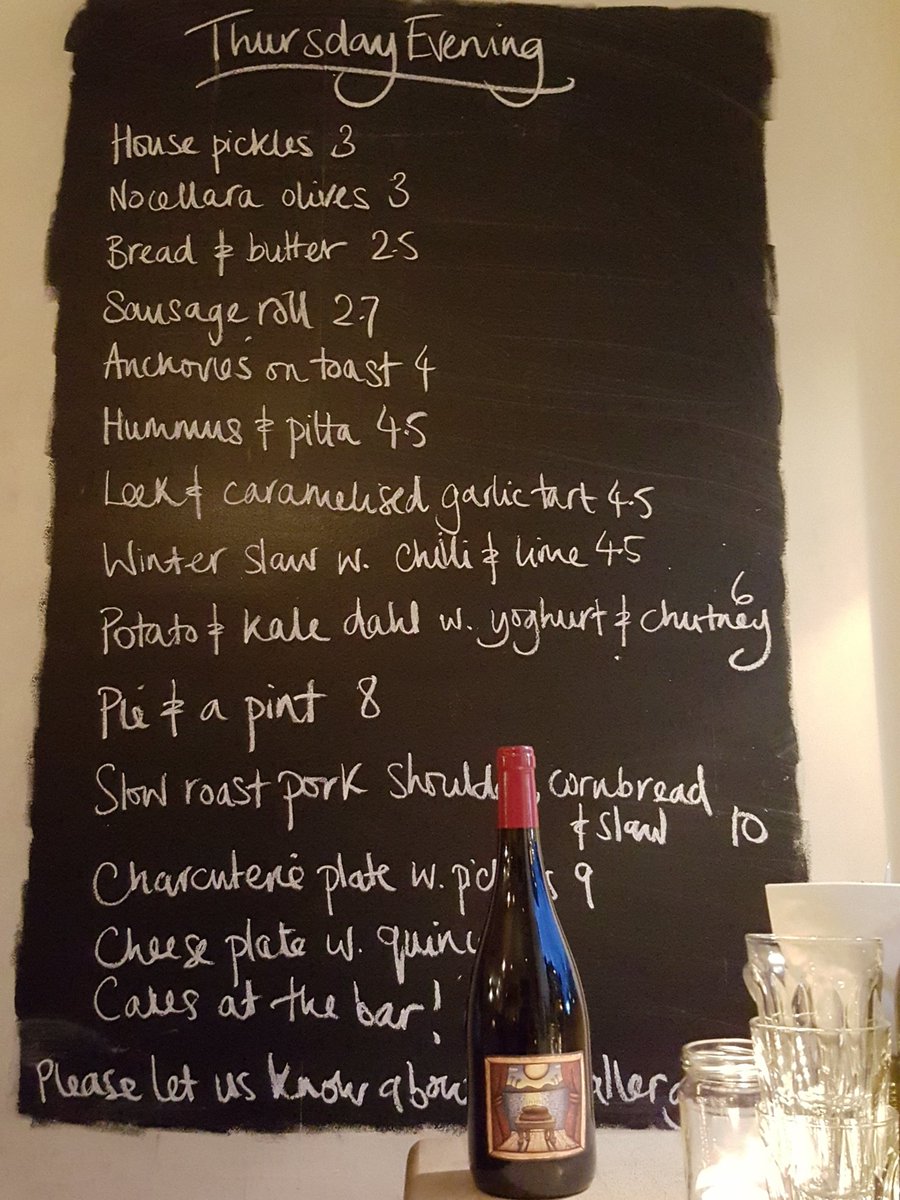 Thursday Evening
House pickles 3
Nocellara olives 3
Bread & butter 2.5
Sausage roll 2.7
Anchovies on toast 4
Hummus & pitta 4.5
Leek & caramelised garlic tart 4.5
Winter slaw w. chilli & lime 4.5
Potato & kale dahl w. yoghurt & chutney 6
Pie & a pint 8
Slow roast pork cornbread
& slaw 10
Charcuterie plate w. 9
Cheese plate w.
Cakes at the bar!
Please let us know